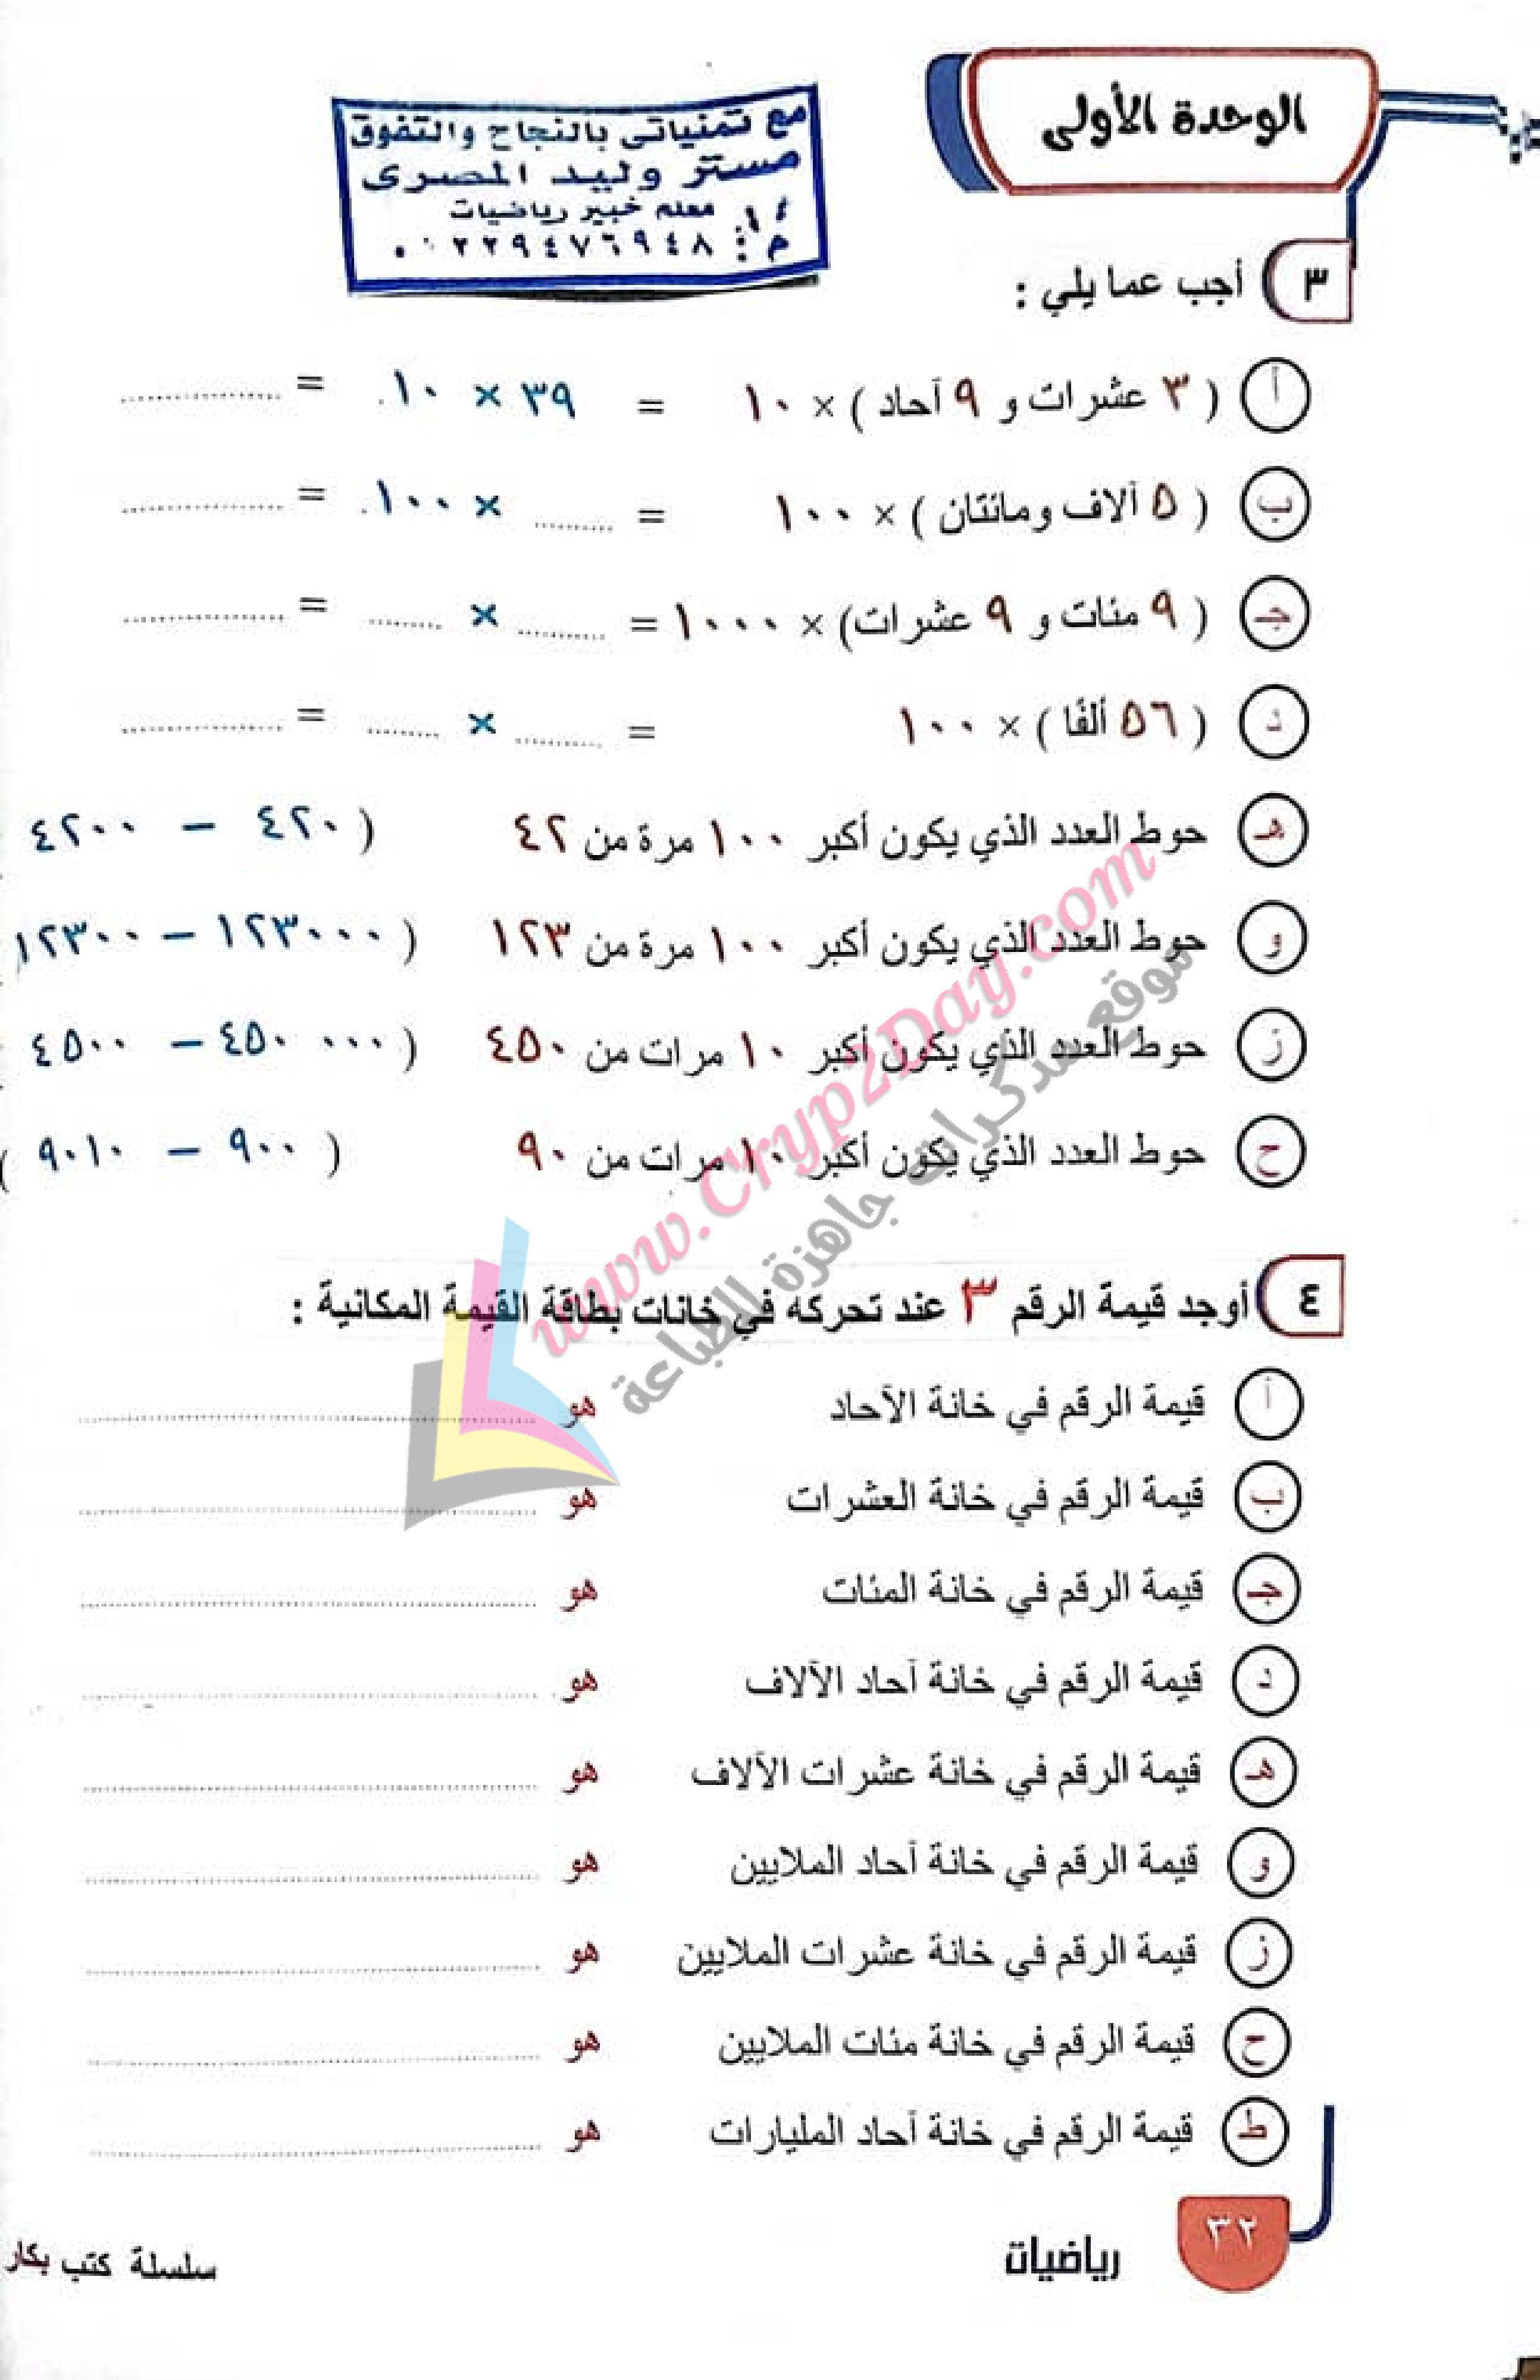 الوحدة الأولى
مع تمنياتى بالنجاح والتفوق
مستر وليد المصرى
معلم خبير رياضيات
٣ أجب عما يلي :
أ ( ٣ عشرات و ٩ آحاد ) × ١٠ = ٣٩ × ١٠ = ............
ب ( ٥ آلاف ومائتان ) × ١٠٠ = ........ × ١٠٠ = ............
جـ ( ٩ مئات و ٩ عشرات) × ١٠٠٠ = ........ × ........ = ............
د ( ٥٦ ألفًا ) × ١٠٠ = ........ × ........ = ............
هـ حوط العدد الذي يكون أكبر ١٠٠ مرة من ٤٢ ( ٤٢٠ – ٤٢٠٠
و حوط العدد الذي يكون أكبر ١٠٠ مرة من ١٢٣ ( ١٢٣٠٠٠ – ١٢٣٠٠
ز حوط العدد الذي يكون أكبر ١٠ مرات من ٤٥٠ ( ٤٥٠ ٠٠٠ – ٤٥٠٠
ح حوط العدد الذي يكون أكبر ١٠ مرات من ٩٠ ( ٩٠٠ – ٩٠١٠ )
٤ أوجد قيمة الرقم ٣ عند تحركه في خانات بطاقة القيمة المكانية :
أ قيمة الرقم في خانة الآحاد هو ............
ب قيمة الرقم في خانة العشرات هو ............
جـ قيمة الرقم في خانة المئات هو ............
د قيمة الرقم في خانة آحاد الآلاف هو ............
هـ قيمة الرقم في خانة عشرات الآلاف هو ............
و قيمة الرقم في خانة آحاد الملايين هو ............
ز قيمة الرقم في خانة عشرات الملايين هو ............
ح قيمة الرقم في خانة مئات الملايين هو ............
ط قيمة الرقم في خانة آحاد المليارات هو ............
٣٢ رياضيات
سلسلة كتب بكار
www.Cryp2Day.com
موقع مذكرات جاهزة للطباعة